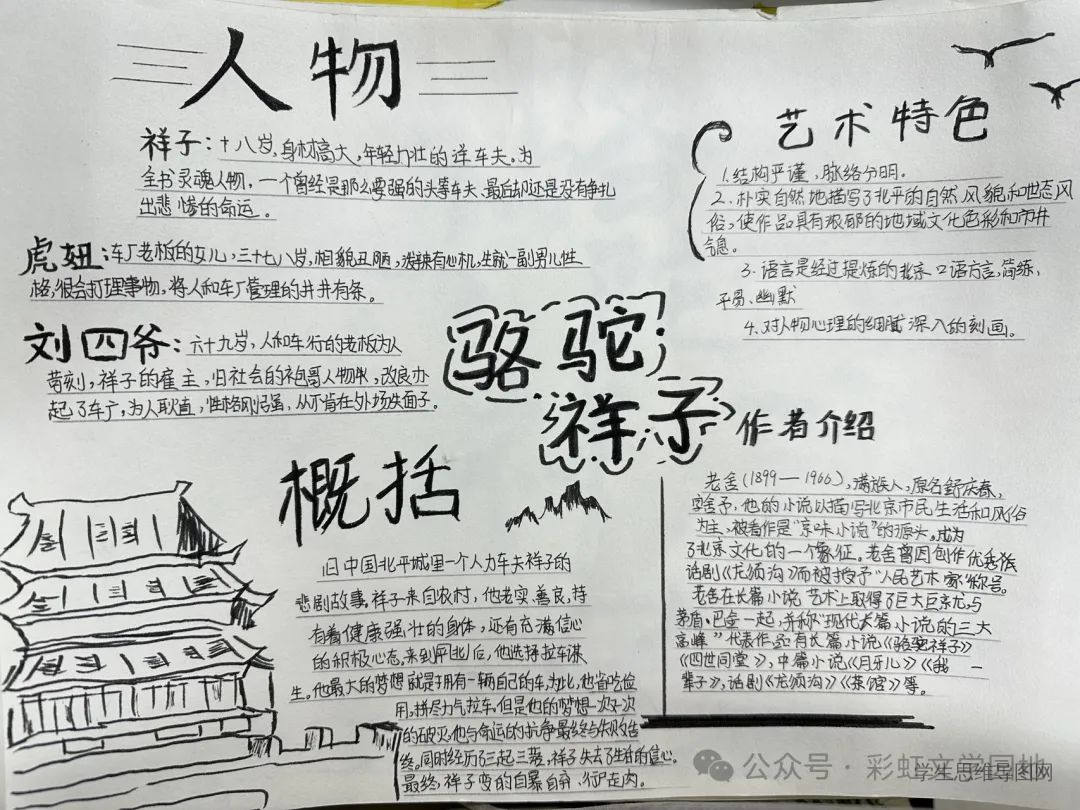 人物
祥子：十八岁，身材高大，年轻力壮的洋车夫。为
全书灵魂人物，一个曾经是那么要强的头等车夫，最后却还是没有争扎
出悲惨的命运。
虎妞：车厂老板的女儿，三十七八岁，相貌丑陋，泼辣有心机，生就一副男儿性
格，很会打理事物，将人和车厂管理的井井有条。
刘四爷：六十九岁，人和车行的老板为人
苛刻，祥子的雇主，旧社会的袍哥人物，改良办
起了车厂，为人耿直，性格刚强，从不肯在外场失面子。
艺术特色
1.结构严谨，脉络分明。
2.朴实自然地描写了北平的自然风貌和世态风
俗，使作品具有浓郁的地域文化色彩和市井
气息。
3.语言是经过提炼的北京口语方言，简练、
平易、幽默
4.对人物心理的细腻深入的刻画。
骆驼
祥子
概括
旧中国北平城里一个人力车夫祥子的
悲剧故事。祥子来自农村，他老实、善良，持
有着健康强壮的身体，还有充满信心
的积极心态。来到北后，他选择拉车谋
生。他最大的梦想就是拥有一辆自己的车，为此，他省吃俭
用，拼尽力气拉车。但是他的梦想一次又一次
的破灭，他与命运的抗争最终与失败告
终。同时经历了三起三落，祥子失去了生活的信心。
最终，祥子变的自暴自弃，行尸走肉。
作者介绍
老舍（1899—1966），满族人，原名舒庆春，
字舍予，他的小说以描写北京市民生活和风俗
为主，被看作是“京味小说”的源头。成为
了北京文化的一个象征。老舍曾因创作优秀
话剧《龙须沟》而被授予“人民艺术家”称号。
老舍在长篇小说艺术上取得了巨大，与
茅盾、巴金一起，并称“现代长篇小说的三大
高峰”代表作品有长篇小说《骆驼祥子》
《四世同堂》，中篇小说《月牙儿》《我一
辈子》，话剧《龙须沟》《茶馆》等。
公众号·彩虹文学园地
学生思维导图网